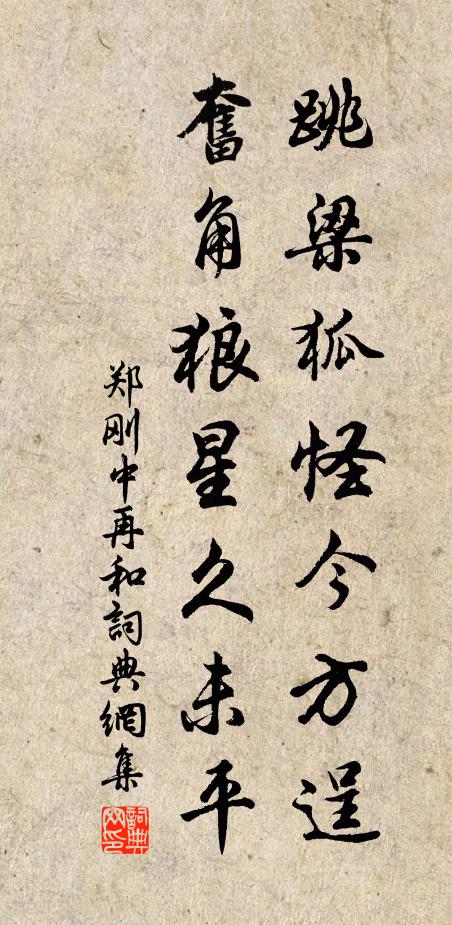 跳梁狐怪今方逞
奮角狼星久未平
郑刚中再和詞典網集
詞典网印